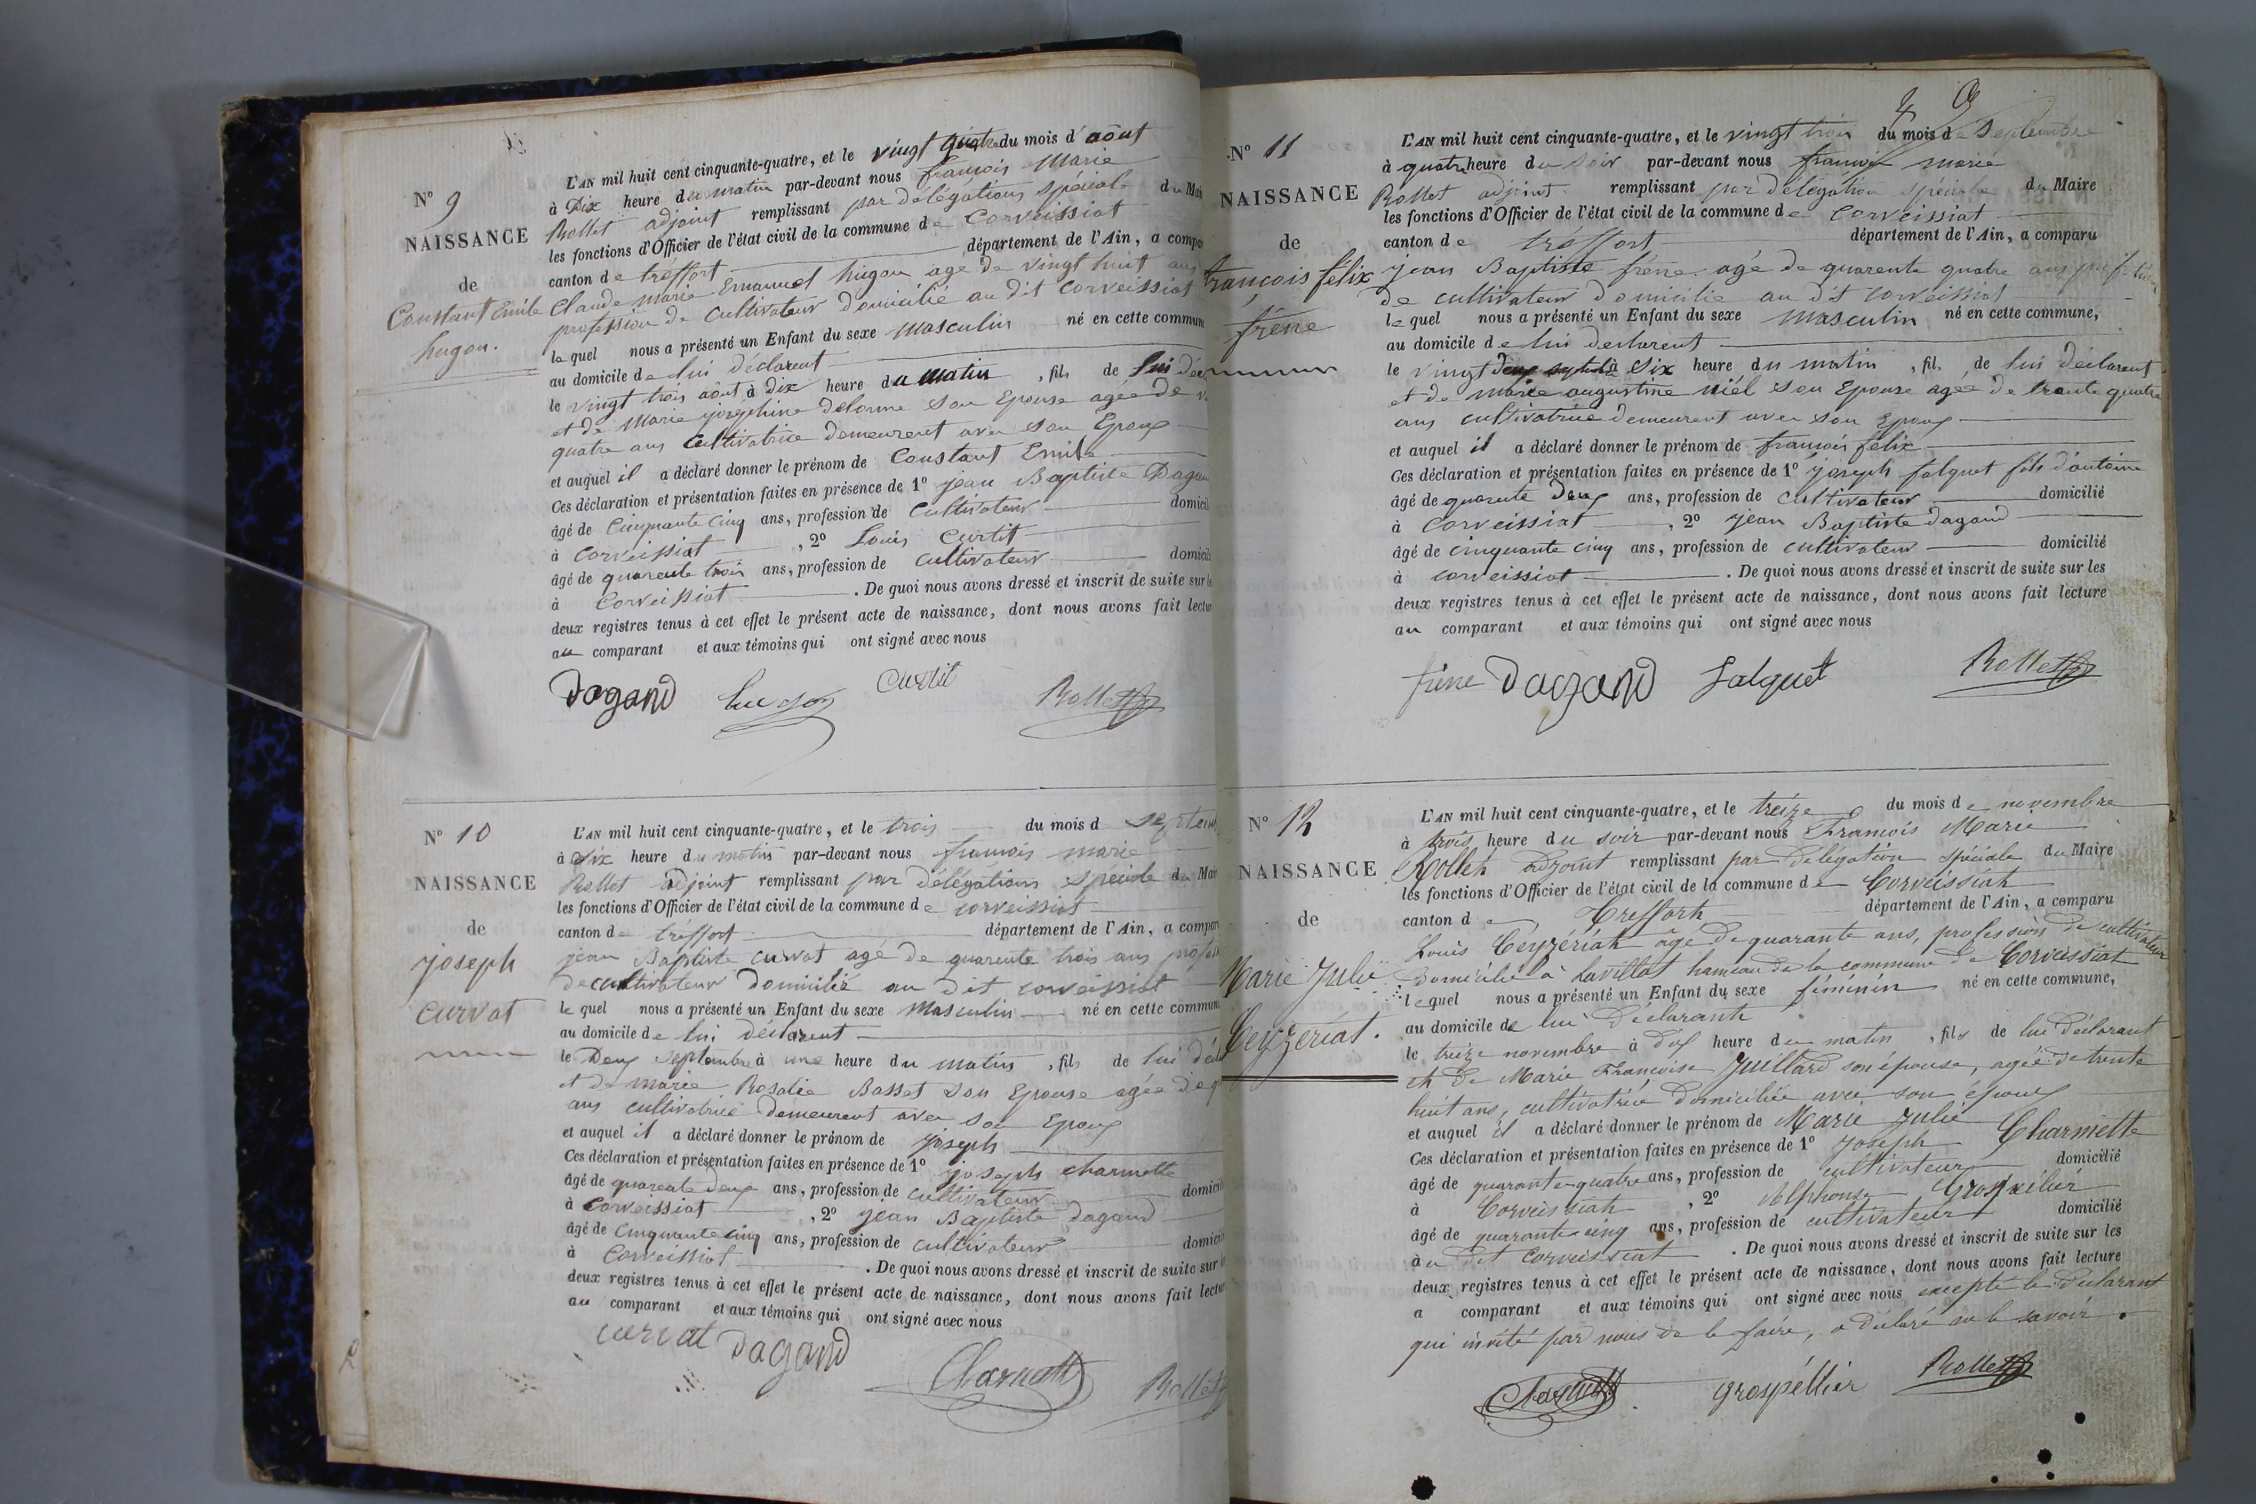 N° 9
NAISSANCE
de
Constant Emile
hugon.
L'AN mil huit cent cinquante-quatre, et le vingt quatre du mois d'août
à Dix heure du matin par-devant nous françois Marie
Rollet adjoint remplissant par délégations spéciale du Mai
les fonctions d'Officier de l'état civil de la commune de Corveissiat
canton de tréffort département de l'Ain, a compa
Claude marie Emanuel hugon agé de vingt huit ans
profession de cultivateur domicilié au dit corveissiat
lequel nous a présenté un Enfant du sexe masculin né en cette commune
au domicile de lui déclarent
le vingt trois août à dix heure du matin, fils de lui déc
et de Marie joséphine delorme son Epouse agée de
quatre ans cultivatrice demeurent avec son Epoux
et auquel il a déclaré donner le prénom de Constant Emile
Ces déclaration et présentation faites en présence de 1° jean Baptiste Dagan
âgé de Cinquante cinq ans, profession de cultivateur domicil
à corveissiat, 2° Louis Curtit
âgé de quarente trois ans, profession de cultivateur domicil
à Corveissiat. De quoi nous avons dressé et inscrit de suite sur le
deux registres tenus à cet effet le présent acte de naissance, dont nous avons fait lectur
au comparant et aux témoins qui ont signé avec nous
Dagand hugon Curtit Rollet
N° 10
NAISSANCE
de
joseph
curvat
L'AN mil huit cent cinquante-quatre, et le trois du mois d septem
à Dix heure du matin par-devant nous françois marie
Rollet adjoint remplissant par délégations spéciale du Mai
les fonctions d'Officier de l'état civil de la commune de corveissiat
canton de tréffort département de l'Ain, a compar
jean Baptiste curvat agé de quarente trois ans profes
de cultivateur domicilié au dit corveissiat
lequel nous a présenté un Enfant du sexe Masculin né en cette commun
au domicile de lui déclarent
le Deux septembre à une heure du matin, fils de lui décl
et de marie Rosalie Basset son Epouse agée de q
ans cultivatrice demeurent avec son Epoux
et auquel il a déclaré donner le prénom de joseph
Ces déclaration et présentation faites en présence de 1° joseph charmette
âgé de quarente deux ans, profession de cultivateur domicil
à Corveissiat, 2° jean Baptiste dagand
âgé de Cinquante cinq ans, profession de cultivateur domicil
à Corveissiat. De quoi nous avons dressé et inscrit de suite sur
deux registres tenus à cet effet le présent acte de naissance, dont nous avons fait lectur
au comparant et aux témoins qui ont signé avec nous
curvat Dagand Charmette Rollet
N° 11
NAISSANCE
de
francois félix
frène
L'AN mil huit cent cinquante-quatre, et le vingt trois du mois de septembre
à quatre heure du soir par-devant nous françois marie
Rollet adjoint remplissant par délégation spéciale du Maire
les fonctions d'Officier de l'état civil de la commune de corveissiat
canton de tréffort département de l'Ain, a comparu
jean Baptiste frène agé de quarente quatre ans profession
de cultivateur domicilié au dit corveissiat
lequel nous a présenté un Enfant du sexe masculin né en cette commune,
au domicile de lui declarent
le vingt deux septembre à Six heure du matin, fils de lui déclarent
et de marie augustine niél son Epouse agée de trente quatre
ans cultivatrice demeurent avec son Epoux
et auquel il a déclaré donner le prénom de francois félix
Ces déclaration et présentation faites en présence de 1° joseph falquet fils d'antoine
âgé de quarente deux ans, profession de cultivateur domicilié
à Corveissiat, 2° jean Baptiste dagand
âgé de cinquante cinq ans, profession de cultivateur domicilié
à corveissiat. De quoi nous avons dressé et inscrit de suite sur les
deux registres tenus à cet effet le présent acte de naissance, dont nous avons fait lecture
au comparant et aux témoins qui ont signé avec nous
frène Dagand falquet Rollet
N° 12
NAISSANCE
de
Marie Julie
Ceyzériat.
L'AN mil huit cent cinquante-quatre, et le treize du mois de novembre
à trois heure du soir par-devant nous François Marie
Rollet adjoint remplissant par délégation spéciale du Maire
les fonctions d'Officier de l'état civil de la commune de Corveissiat
canton de Treffort département de l'Ain, a comparu
Louis Ceyzériat âgé de quarante ans, profession de cultivateur
domicilié à Lavillat hameau de la commune de Corveissiat
lequel nous a présenté un Enfant du sexe féminin né en cette commune,
au domicile de lui Déclarant
le treize novembre à dix heure du matin, fils de lui déclarant
et de Marie Françoise Juillard son épouse, agée de trente
huit ans, cultivatrice domiciliée avec son époux
et auquel il a déclaré donner le prénom de Marie Julie
Ces déclaration et présentation faites en présence de 1° Joseph Charmette
âgé de quarante-quatre ans, profession de cultivateur domicilié
à Corveissiat, 2° Alphonse Grospélier
âgé de quarante cinq ans, profession de cultivateur domicilié
au dit Corveissiat. De quoi nous avons dressé et inscrit de suite sur les
deux registres tenus à cet effet le présent acte de naissance, dont nous avons fait lecture
a comparant et aux témoins qui ont signé avec nous excepté le déclarant
qui invité par nous de le faire, a déclaré ne le savoir.
Charmette grospéllier Rollet